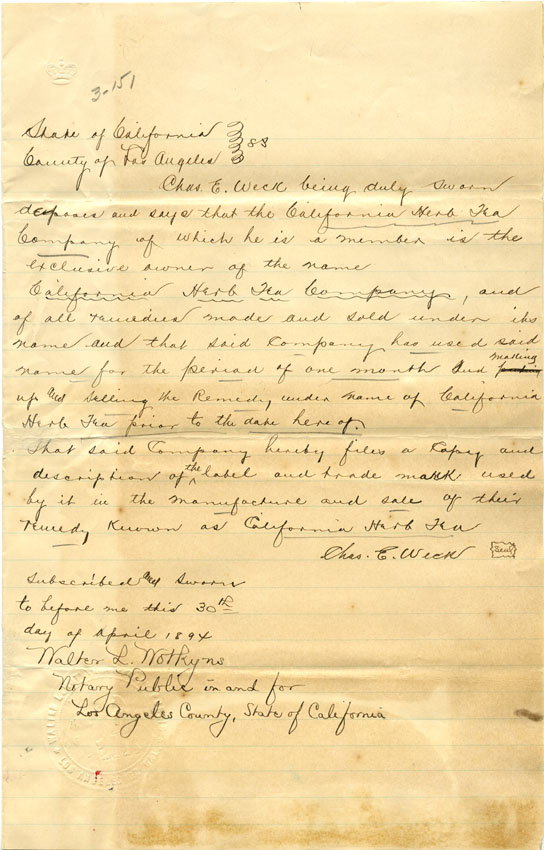 3-151
State of California } SS
County of Los Angeles }
Chas. E. Weck being duly sworn
deposes and says that the California Herb Tea
Company of which he is a member is the
exclusive owner of the name
California Herb Tea Company, and
of all remedies made and sold under its
name and that said Company has used said
name for the period of one month and making
up and Selling the Remedy under name of California
Herb Tea prior to the date here of.
That said Company hereby files a Copy and
description of the label and trade mark used
by it in the manufacture and sale of their
remedy known as California Herb Tea
Chas. E. Weck Seal
Subscribed and Sworn
to before me this 30th
day of April 1894
Walter L. Wotkyns
Notary Public in and for
Los Angeles County, State of California